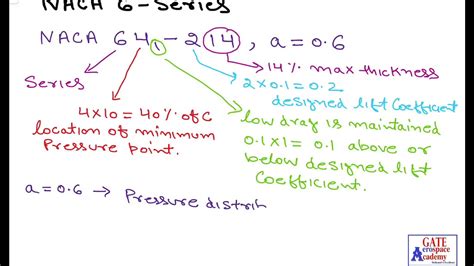 NACA 6-Series
NACA 64₁-214, a=0.6
14% max thickness
Series
2x0.1=0.2
designed lift Coefficient
4x10=40% of C
location of minimum
Pressure point.
low drag is maintained
0.1x1=0.1 above or
below designed lift
Coefficient.
a=0.6 → Pressure distrib
GATE
Aerospace
Academy